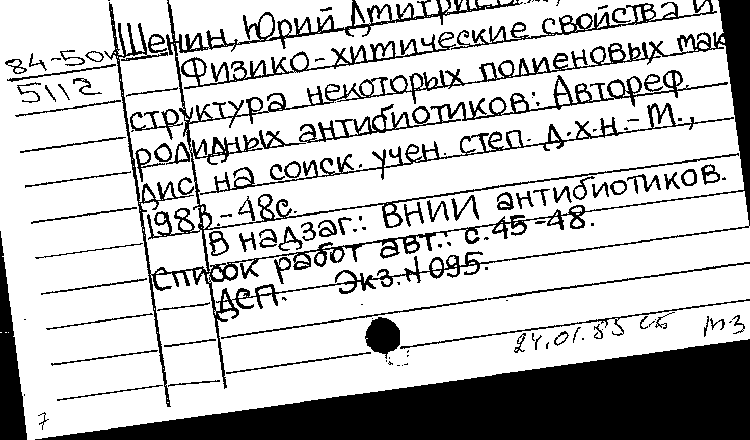 Шенин, Юрий Дмитриевич
84-50к
5112
Физико-химические свойства и
структура некоторых полиеновых мак
ролидных антибиотиков: Автореф.
дис. на соиск. учен. степ. д.х.н.-М.,
1983.-48с.
В надзаг.: ВНИИ антибиотиков.
Список работ авт.: с.45-48.
ДСП. Экз.N 095.
24.01.85 МЗ
7